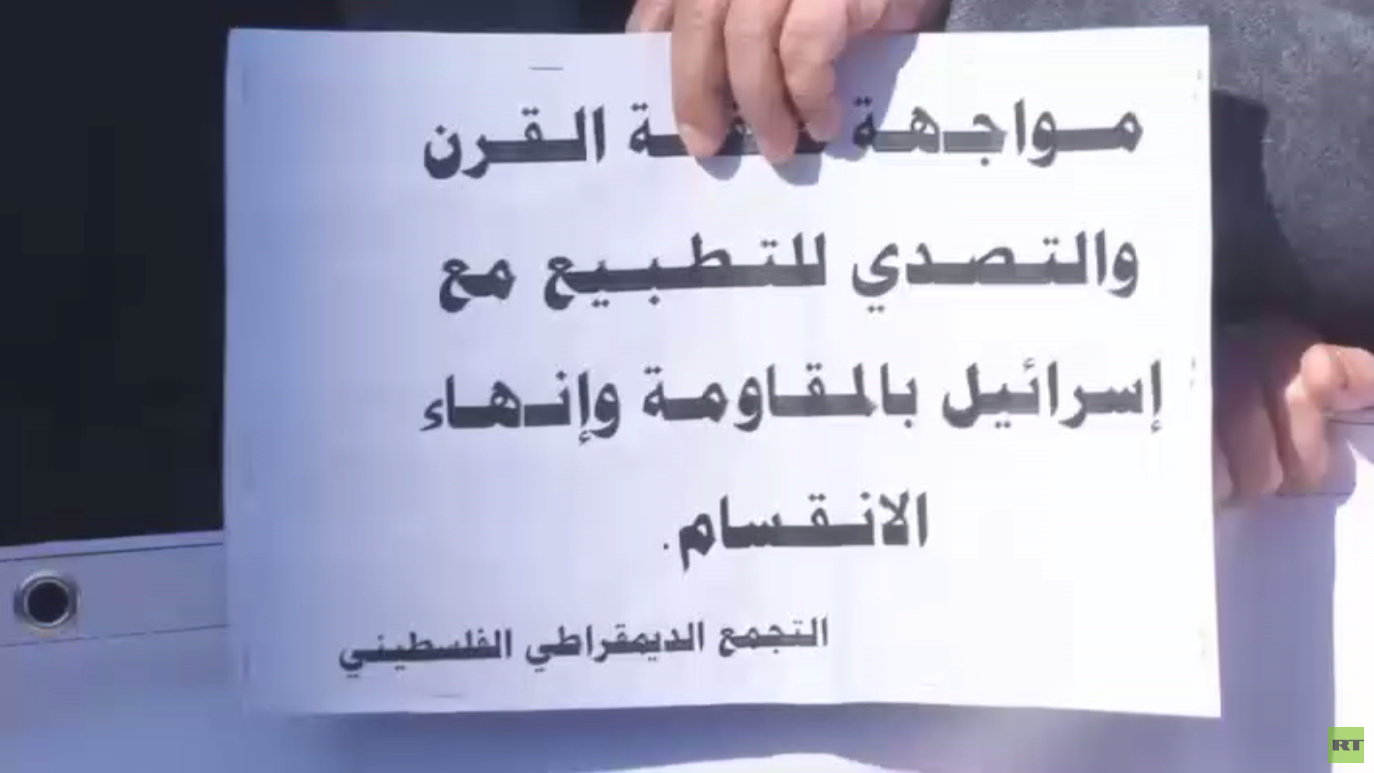 مواجهة صفقة القرن
والتصدي للتطبيع مع
إسرائيل بالمقاومة وإنهاء
الانقسام.
التجمع الديمقراطي الفلسطيني
RT